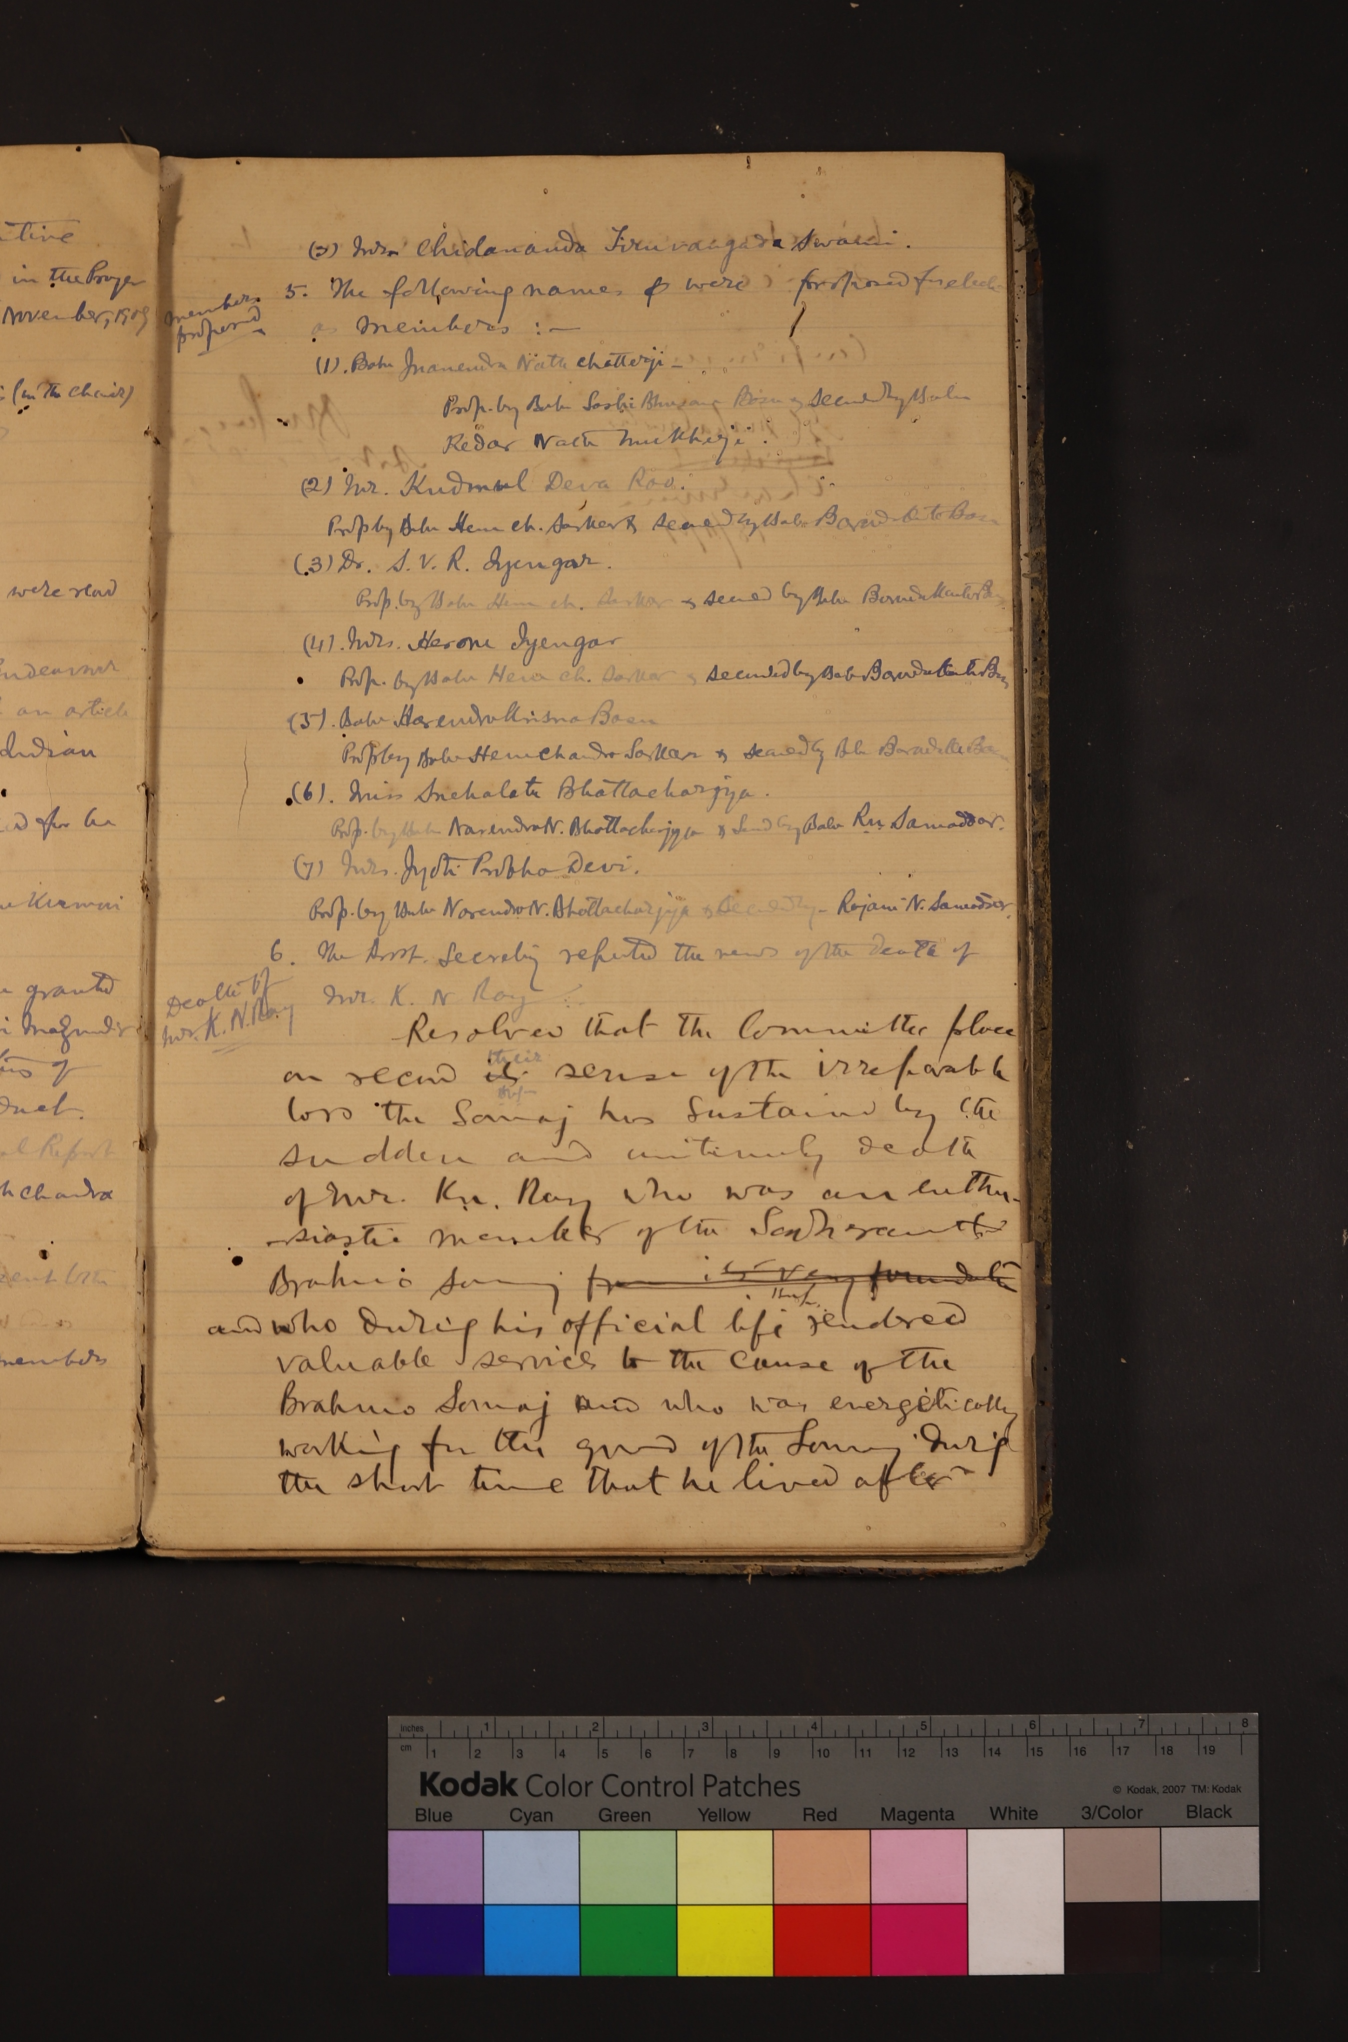 itive
in the Prayer
November, 1909
(in the chair)
were read
Endeavour
an article
Indian
for he
Kumari
granted
of
duct.
al Report
h chandra
members
(3) Mrs. Chidananda Tiruvangada Swami.
members
proposed
5. The following names & were proposed for elec
as members :—
(1). Babu Jnanendra Nath Chatterji —
Prop. by Babu Sashi Bhusang Basu & seconded by Babu
Kedar Nath Mukherji.
(2) Mr. Kudmul Deva Rao.
Prop by Babu Hem ch. Sarkar & seconded by Babu Barada Kanta Basu
(3) Dr. S. V. R. Iyengar.
Prop. by Babu Hem ch. Sarkar & seconed by Babu Barada Kanta Basu
(4). Mrs. Herone Iyengar
Prop. by Babu Hem ch. Sarkar & seconded by Babu Barada Kanta Basu
(5). Babu Harendra Krisna Basu
Prop by Babu Hemchandra Sarkar & seconded by Babu Barada K. Basu
(6). Miss Snehalata Bhattacharjya.
Prop. by Babu Narendra N. Bhattacharjya & Secnd by Babu R.N. Samaddar.
(7) Mrs. Jyoti Probha Devi.
Prop. by Babu Narendra N. Bhattacharjya & Seconded by — Rajani N. Samaddar.
6. The Asst. Secretary reported the news of the death of
Mr. K. N Ray
Death of
Mr. K. N. Ray
Resolved that the Committee place
on record its their sense of the irreparable
loss the Samaj has sustained by the
sudden and untimely death
of Mr. K.N. Ray who was an enthu-
-siastic member of the Sadharan
Brahmo Samaj from its very foundation
and who during his official life rendered
valuable services to the cause of the
Brahmo Samaj and who was energetically
working for the good of the Samaj during
the short time that he lived after
inches 1 2 3 4 5 6 7 8
cm 1 2 3 4 5 6 7 8 9 10 11 12 13 14 15 16 17 18 19
Kodak Color Control Patches
© Kodak, 2007 TM: Kodak
Blue Cyan Green Yellow Red Magenta White 3/Color Black